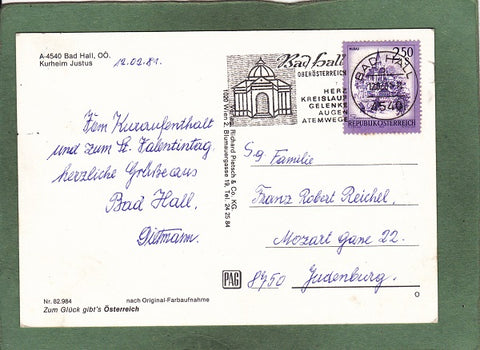 A-4540 Bad Hall, OÖ.
Kurheim Justus
12.02.81.
Vom Kuraufenthalt
und zum St. Valentintag
herzliche Grüße aus
Bad Hall,
Dittmann.
Nr. 82.984
nach Original-Farbaufnahme
Zum Glück gibt's Österreich
Richard Pietsch & Co. KG.
1020 Wien 2, Blumauergasse 19, Tel. 24 25 84
PAG
Bad Hall
OBERÖSTERREICH
HERZ
KREISLAUF
GELENKE
AUGEN
ATEMWEGE
2.50
BAD HALL
4540
REPUBLIK ÖSTERREICH
Sg Familie
Franz Robert Reichel,
Mozart gasse 22.
8750 Judenburg.